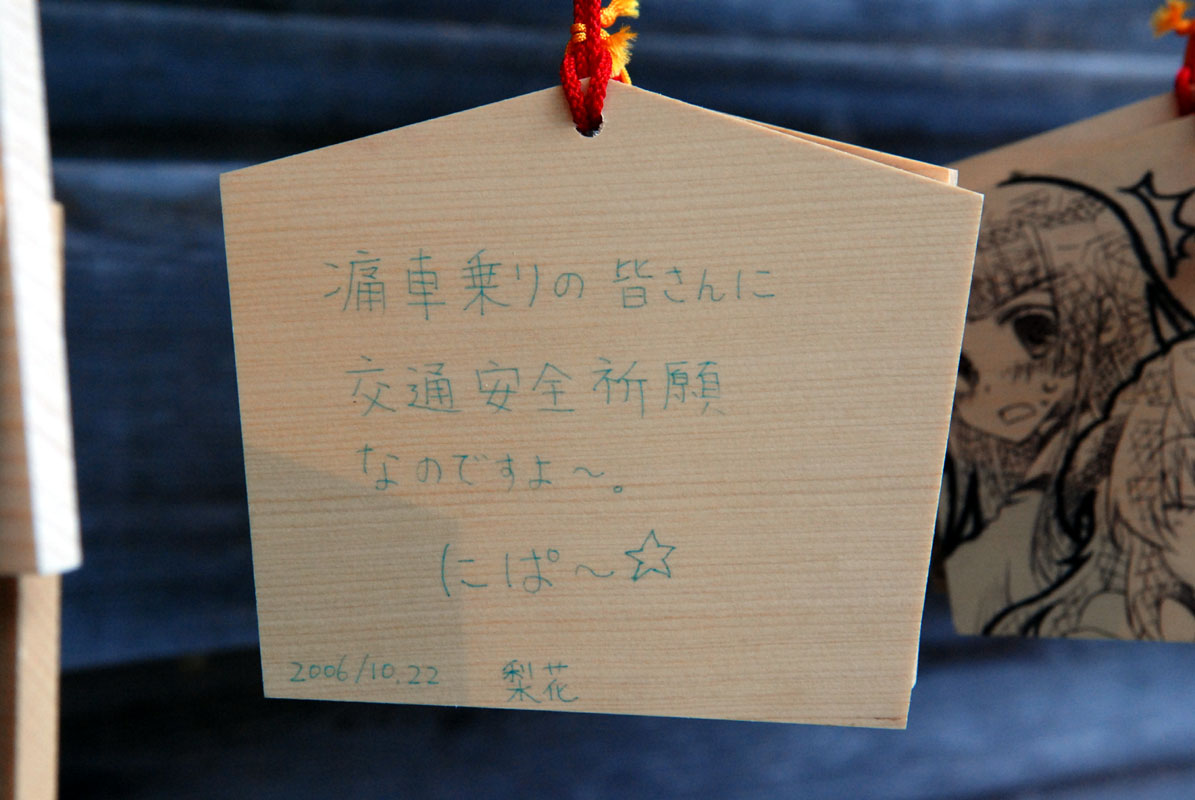 痛車乗りの皆さんに
交通安全祈願
なのですよ～。
にぱ～☆
2006/10.22 梨花